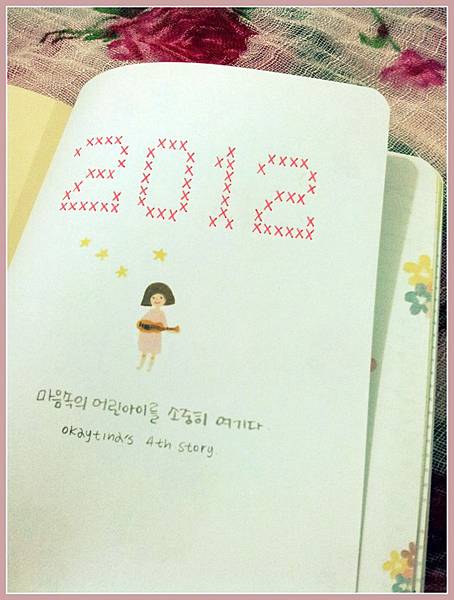 2012
마음속의 어린아이를 소중히 여기다.
okaytina's 4th story.